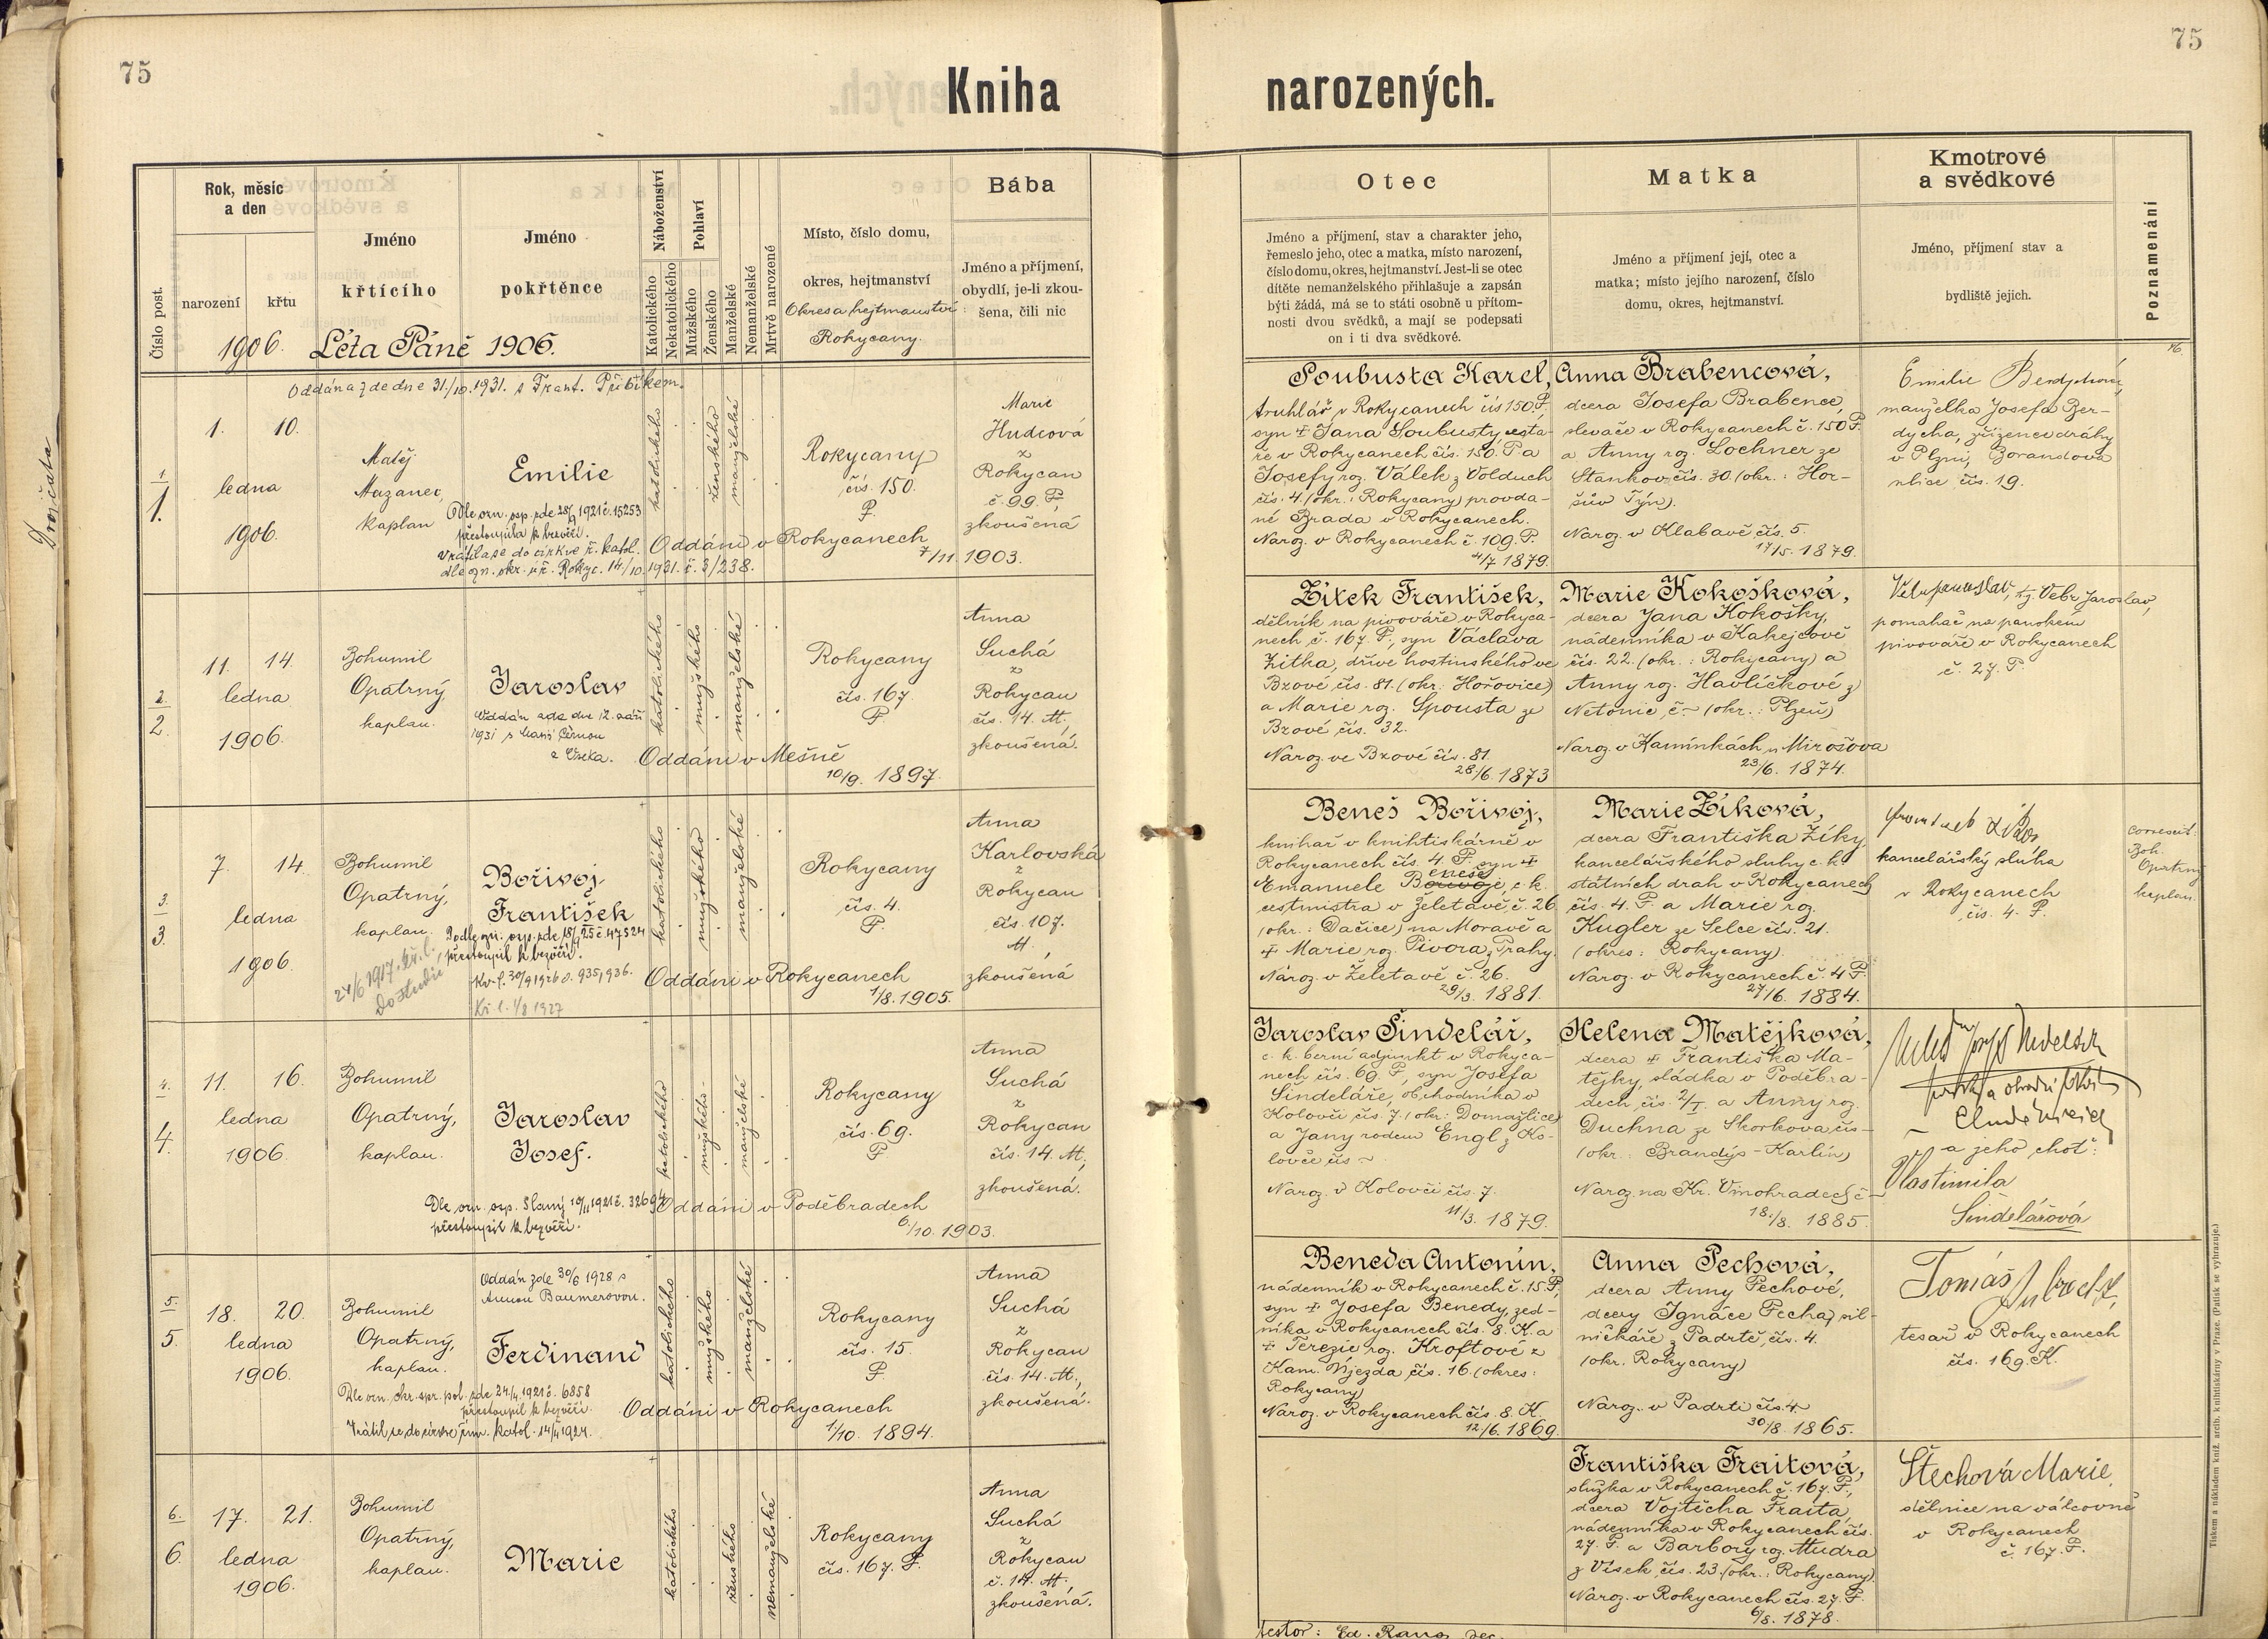 75
75
Kniha narozených.
Dvojčata
Číslo post.
Rok, měsíc
a den
narození
křtu
Jméno
křtícího
Jméno
pokřtěnce
Náboženství
Katolického
Nekatolického
Pohlaví
Mužského
Ženského
Manželské
Nemanželské
Mrtvě narozené
Místo, číslo domu,
okres, hejtmanství
Okres a hejtmanství:
Rokycany.
Bába
Jméno a příjmení,
obydlí, je-li zkou-
šena, čili nic
Otec
Jméno a příjmení, stav a charakter jeho,
řemeslo jeho, otec a matka, místo narození,
číslo domu, okres, hejtmanství. Jest-li se otec
dítěte nemanželského přihlašuje a zapsán
býti žádá, má se to státi osobně u přítom-
nosti dvou svědků, a mají se podepsati
on i ti dva svědkové.
Matka
Jméno a příjmení její, otec a
matka; místo jejího narození, číslo
domu, okres, hejtmanství.
Kmotrové
a svědkové
Jméno, příjmení stav a
bydliště jejich.
Poznamenání
1906. Léta Páně 1906.
Oddána zde dne 31./10.1931. s Frant. Přibíkem.
1
1.
1. 10.
ledna
1906.
Matěj
Mazanec,
kaplan
Emilie
Dle ozn. osp. zde 28/9 1921 č. 15253
přestoupila k bezvěří.
Vrátila se do církve ř. katol.
dle ozn. okr. úř. Rokyc. 14./10.1931. č. 3/238.
katolického
ženského
manželské
Rokycany
čís. 150.
P.
Oddáni v Rokycanech
7/11. 1903.
Marie
Hudcová
z
Rokycan
č. 99. P.,
zkoušená
Soubusta Karel,
truhlář v Rokycanech čís 150. P.
syn ✝ Jana Soubusty cestá-
ře v Rokycanech čís. 150. P. a
Josefy roz. Válek z Volduch
čís. 4. (okr.: Rokycany) provda-
né Brada v Rokycanech.
Naroz. v Rokycanech č. 109. P.
4/7 1879.
Anna Brabencová,
dcera Josefa Brabence,
slevače v Rokycanech č. 150 P.
a Anny roz. Lochner ze
Stankov čís. 30. (okr.: Hor-
šův Týn).
Naroz. v Klabavě čís. 5.
17/5. 1879.
Emilie Berdychová,
manželka Josefa Ber-
dycha, zřízence dráhy
v Plzni, Gorandova
ulice čís. 19.
2.
2.
11. 14.
ledna
1906.
Bohumil
Opatrný,
kaplan.
Jaroslav
Oddán zde dne 12. září
1931 s Marií Černou
z Oseka.
katolického
mužského
manželské
Rokycany
čís. 167
P.
Oddáni v Mešně
10/9. 1897.
Anna
Suchá
z
Rokycan
čís. 14. M.,
zkoušená.
Žitek František,
dělník na pivováře v Rokyca-
nech č. 167. P., syn Václava
Žitka, dříve hostinského ve
Bzové čís. 81. (okr: Hořovice)
a Marie roz. Spousta ze
Bzové čís. 32.
Naroz. ve Bzové čís. 81.
28/6. 1873
Marie Kokošková,
dcera Jana Kokošky,
nádenníka v Kakejcově
čís. 22. (okr.: Rokycany) a
Anny roz. Havlíčkové z
Netonic, č.- (okr.: Plzeň)
Naroz. v Kamínkách u Mirošova
23./6. 1874.
tj. Vebr Jaroslav,
pomahač na panském
pivováře v Rokycanech
č. 27. P.
3.
3.
7. 14.
ledna
1906.
Bohumil
Opatrný,
kaplan.
24/6 1917. kř. l.
Do studií
Bořivoj
František
Podle ozn. osp. zde 18/9 25 č. 47524
přestoupil k bezvěří.
Kř. l. 30/9 1926 č. 935, 936.
Kř. l. 1/8 1927
katolického
mužského
manželské
Rokycany
čís. 4.
P.
Oddáni v Rokycanech
1/8. 1905.
Anna
Karlovská
z
Rokycan
čís. 107.
M.,
zkoušená
Beneš Bořivoj,
knihař v knihtiskárně v
Rokycanech čís. 4. P. syn ✝
Emanuele Beneše, c. k.
cestmistra v Želetavě, č. 26
(okr.: Dačice) na Moravě a
✝ Marie roz. Pivora z Prahy.
Naroz. v Želetavě č. 26.
29/3. 1881.
Marie Žíková,
dcera Františka Žíky,
kancelářského sluhy c. k.
státních drah v Rokycanech
čís. 4. P. a Marie roz.
Kugler ze Selce čís. 21.
(okres: Rokycany).
Naroz. v Rokycanech č. 4 P.
27/6. 1884.
kancelářský sluha
v Rokycanech
čís. 4. P.
Boh.
Opatrný
kaplan.
4.
4.
11. 16.
ledna
1906.
Bohumil
Opatrný,
kaplan.
Jaroslav
Josef.
Dle ozn. osp. Slaný 19/11 1921 č. 32694
přestoupil k bezvěří.
katolického
mužského
manželské
Rokycany
čís. 69.
P.
Oddáni v Poděbradech
6/10. 1903.
Anna
Suchá
z
Rokycan
čís. 14. M.,
zkoušená.
Jaroslav Šindelář,
c. k. berní adjunkt v Rokyca-
nech čís. 69. P., syn Josefa
Šindeláře, obchodníka v
Kolovči čís. 7. (okr: Domažlice)
a Jany rodem Engl z Ko-
lovče čís -
Naroz. v Kolovči čís. 7.
11/3. 1879.
Helena Matějková,
dcera ✝ Františka Ma-
tějky, sládka v Poděbra-
dech, čís. 2/I. a Anny roz.
Duchna ze Skorkova čís-
(okr.: Brandýs - Karlín)
Naroz. na Kr. Vinohradech č-
18./8. 1885.
a jeho choť:
Vlastimila
Šindelářová
5.
5.
18. 20.
ledna
1906.
Bohumil
Opatrný,
kaplan.
Oddán zde 30/6 1928 s
Annou Baumerovou.
Ferdinand
Dle ozn. okr. spr. pol. zde 24/4. 1921 č. 6858
přestoupil k bezvěří.
Vrátil se do církve řím. katol. 14/4 1927.
katolického
mužského
manželské
Rokycany
čís. 15.
P.
Oddáni v Rokycanech
1/10. 1894.
Anna
Suchá
z
Rokycan
čís. 14. M.,
zkoušená.
Beneda Antonín,
nádenník v Rokycanech č. 15 P.,
syn ✝ Josefa Benedy, zed-
níka v Rokycanech čís. 8. K. a
✝ Terezie roz. Kroftové z
Kam. Újezda čís. 16. (okres:
Rokycany)
Naroz. v Rokycanech čís. 8. K.
12/6. 1869.
Anna Pechová,
dcera Anny Pechové,
dcery Ignáce Pecha, pil-
níčkáře z Padrtě, čís. 4.
(okr. Rokycany)
Naroz. v Padrti čís. 4.
30/8. 1865.
Tomáš
tesař v Rokycanech
čís. 169. K.
6.
6.
17. 21.
ledna
1906.
Bohumil
Opatrný,
kaplan.
Marie
katolického
ženského
nemanželské
Rokycany
čís. 167. P.
Anna
Suchá
z
Rokycan
č. 14. M.,
zkoušená.
Františka Fraitová,
služka v Rokycanech č. 167. P.,
dcera Vojtěcha Fraita,
nádenníka v Rokycanech čís.
27. P. a Barbory roz. Mudra
z Vísek, čís. 23. (okr.: Rokycany).
Naroz. v Rokycanech čís. 27. P.
6/8. 1878.
Štechová Marie,
dělnice na válcovně
v Rokycanech
č. 167. P.
testor: Ed. Rang
Tiskem a nákladem kníž. arcib. knihtiskárny v Praze. (Patisk se vyhrazuje.)